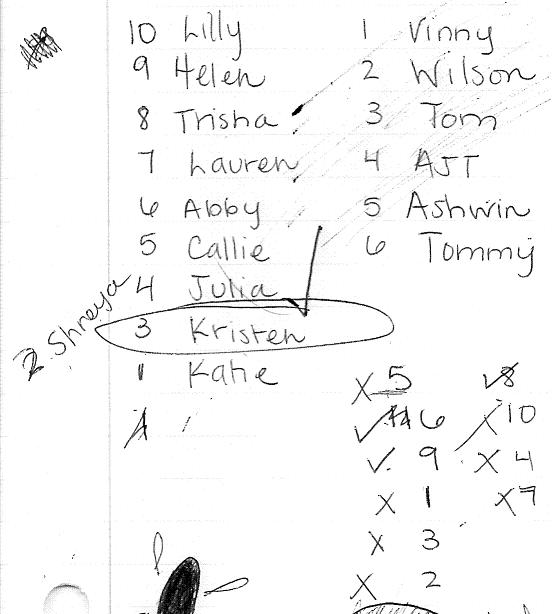 10 Lilly
9 Helen
8 Trisha
7 Lauren
6 Abby
5 Callie
4 Julia
2 Shreya
3 Kristen
1 Katie
1 Vinny
2 Wilson
3 Tom
4 AJT
5 Ashwin
6 Tommy
X 5
✓ 6
✓ 9
X 1
X 3
X 2
✓ 8
X 10
X 4
X 7